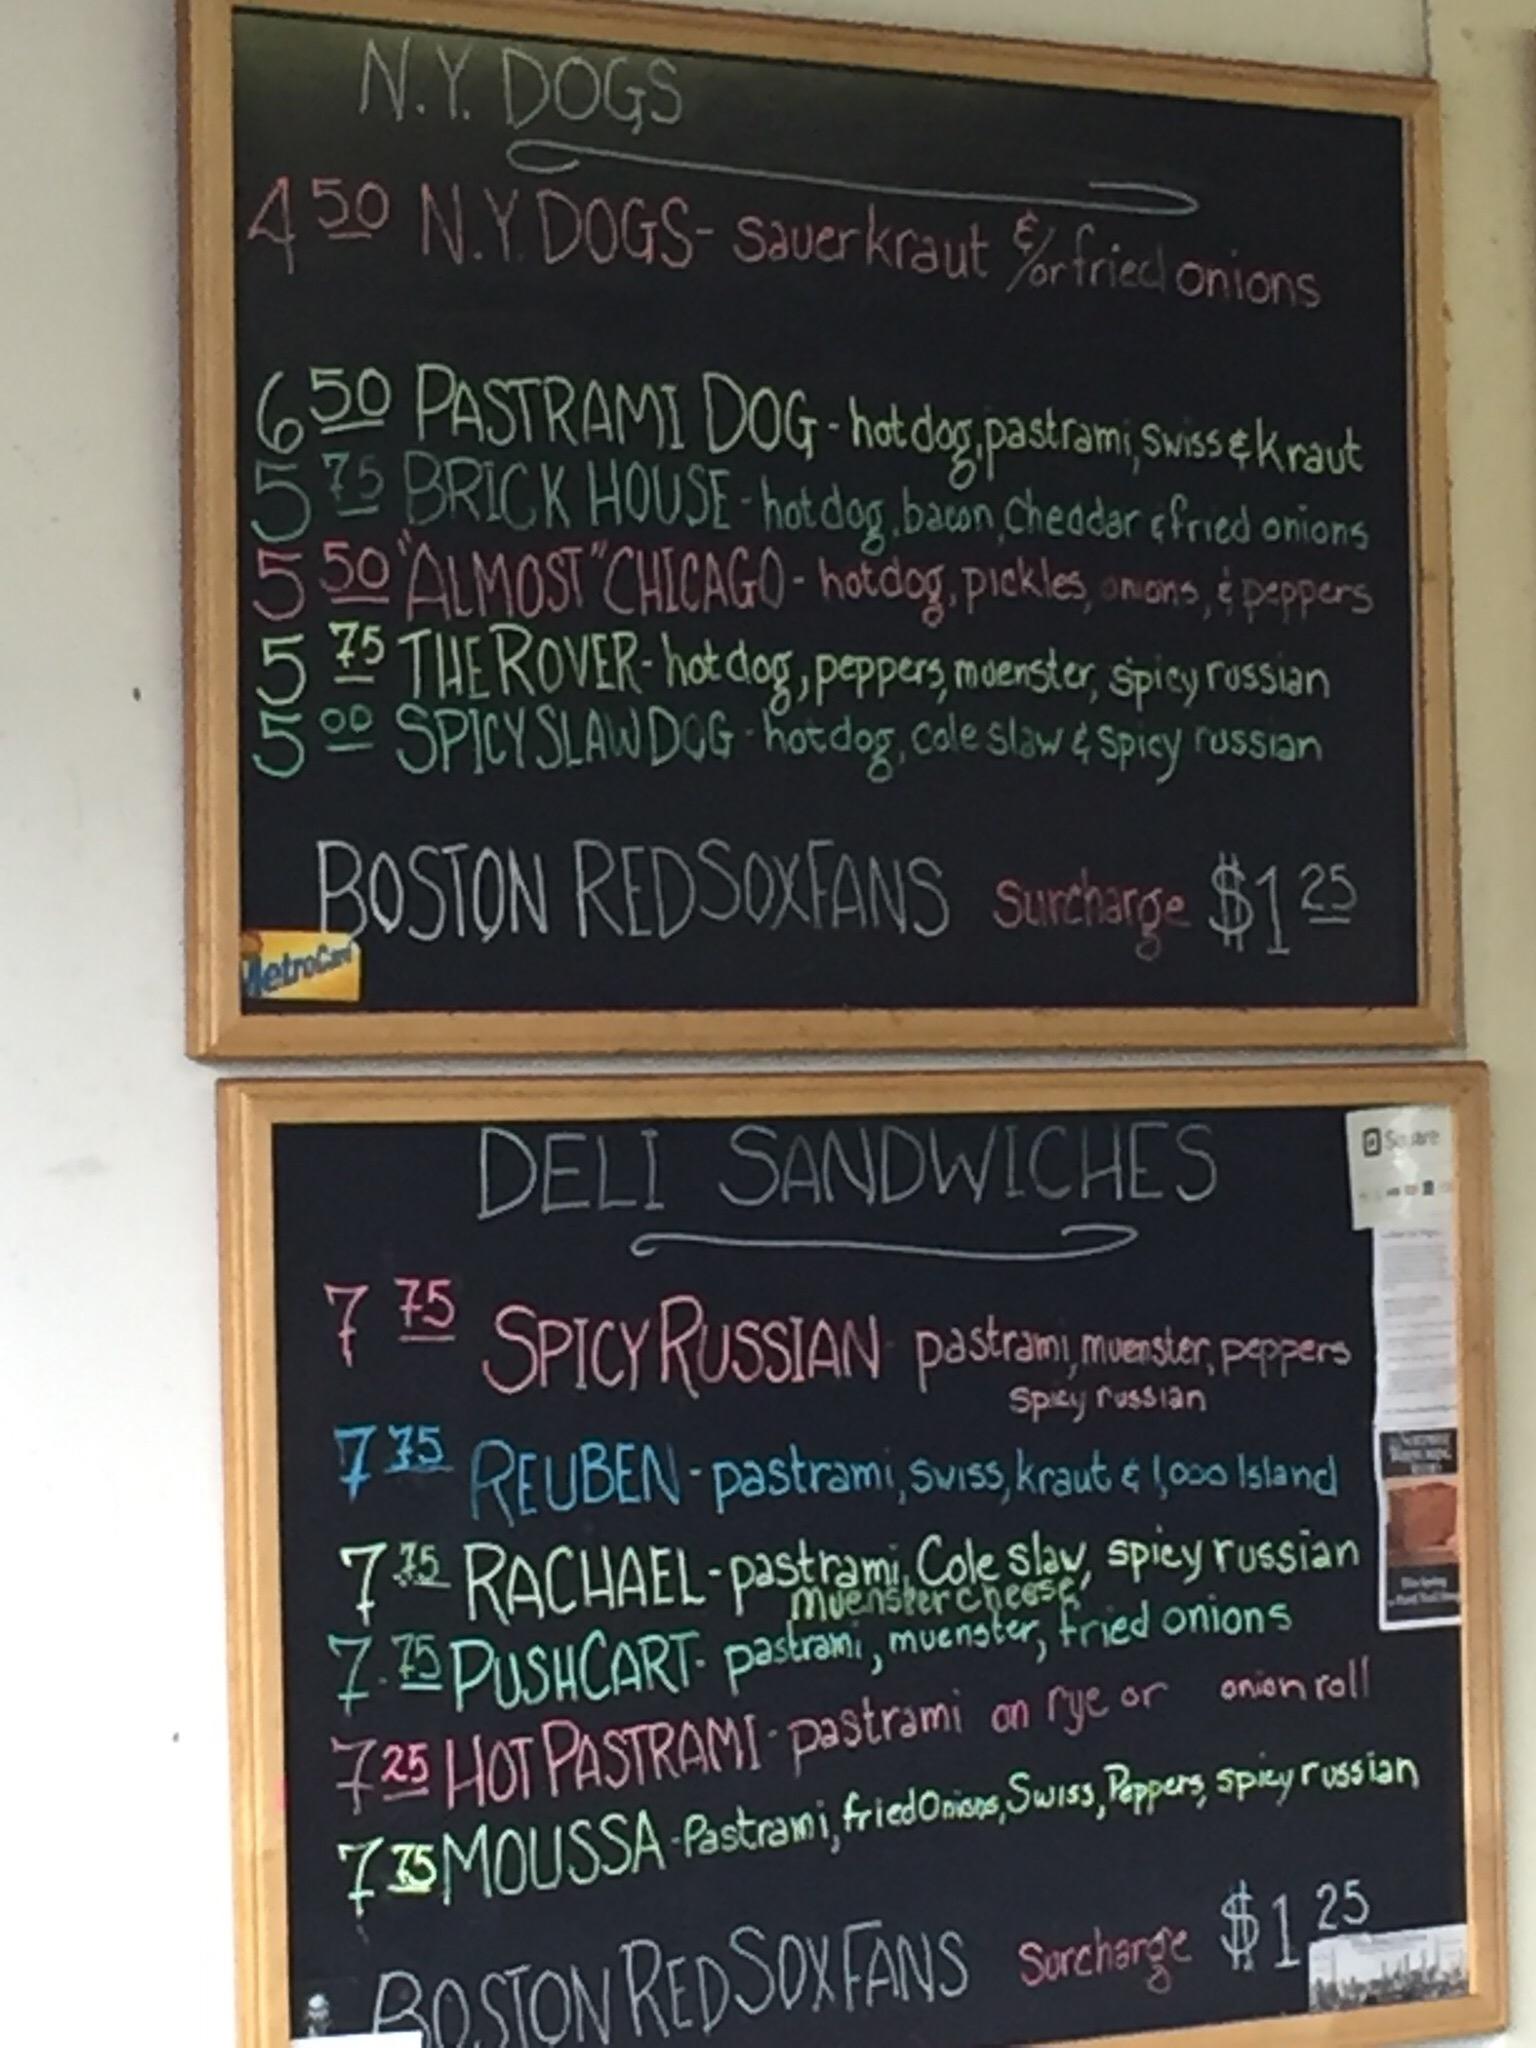 N.Y. DOGS
4 50 N.Y. DOGS - sauerkraut &/or fried onions
6 50 PASTRAMI DOG - hot dog, pastrami, Swiss & Kraut
5 75 BRICK HOUSE - hot dog, bacon, Cheddar & fried onions
5 50 "ALMOST" CHICAGO - hotdog, pickles, onions, & peppers
5 75 THE ROVER - hot dog, peppers, muenster, spicy russian
5 00 SPICY SLAW DOG - hot dog, Cole slaw & spicy russian
BOSTON RED SOX FANS Surcharge $1 25
MetroCard
DELI SANDWICHES
Square
7 75 SPICY RUSSIAN pastrami, muenster, peppers
spicy russian
7 75 REUBEN - pastrami, swiss, kraut & 1,000 Island
7 75 RACHAEL - pastrami, Cole slaw, spicy russian
muenster cheese
7.75 PUSHCART - pastrami, muenster, fried onions
7 25 HOT PASTRAMI - pastrami on rye or onion roll
7 75 MOUSSA - Pastrami, fried Onions, Swiss, Peppers, spicy russian
BOSTON RED SOX FANS Surcharge $1 25